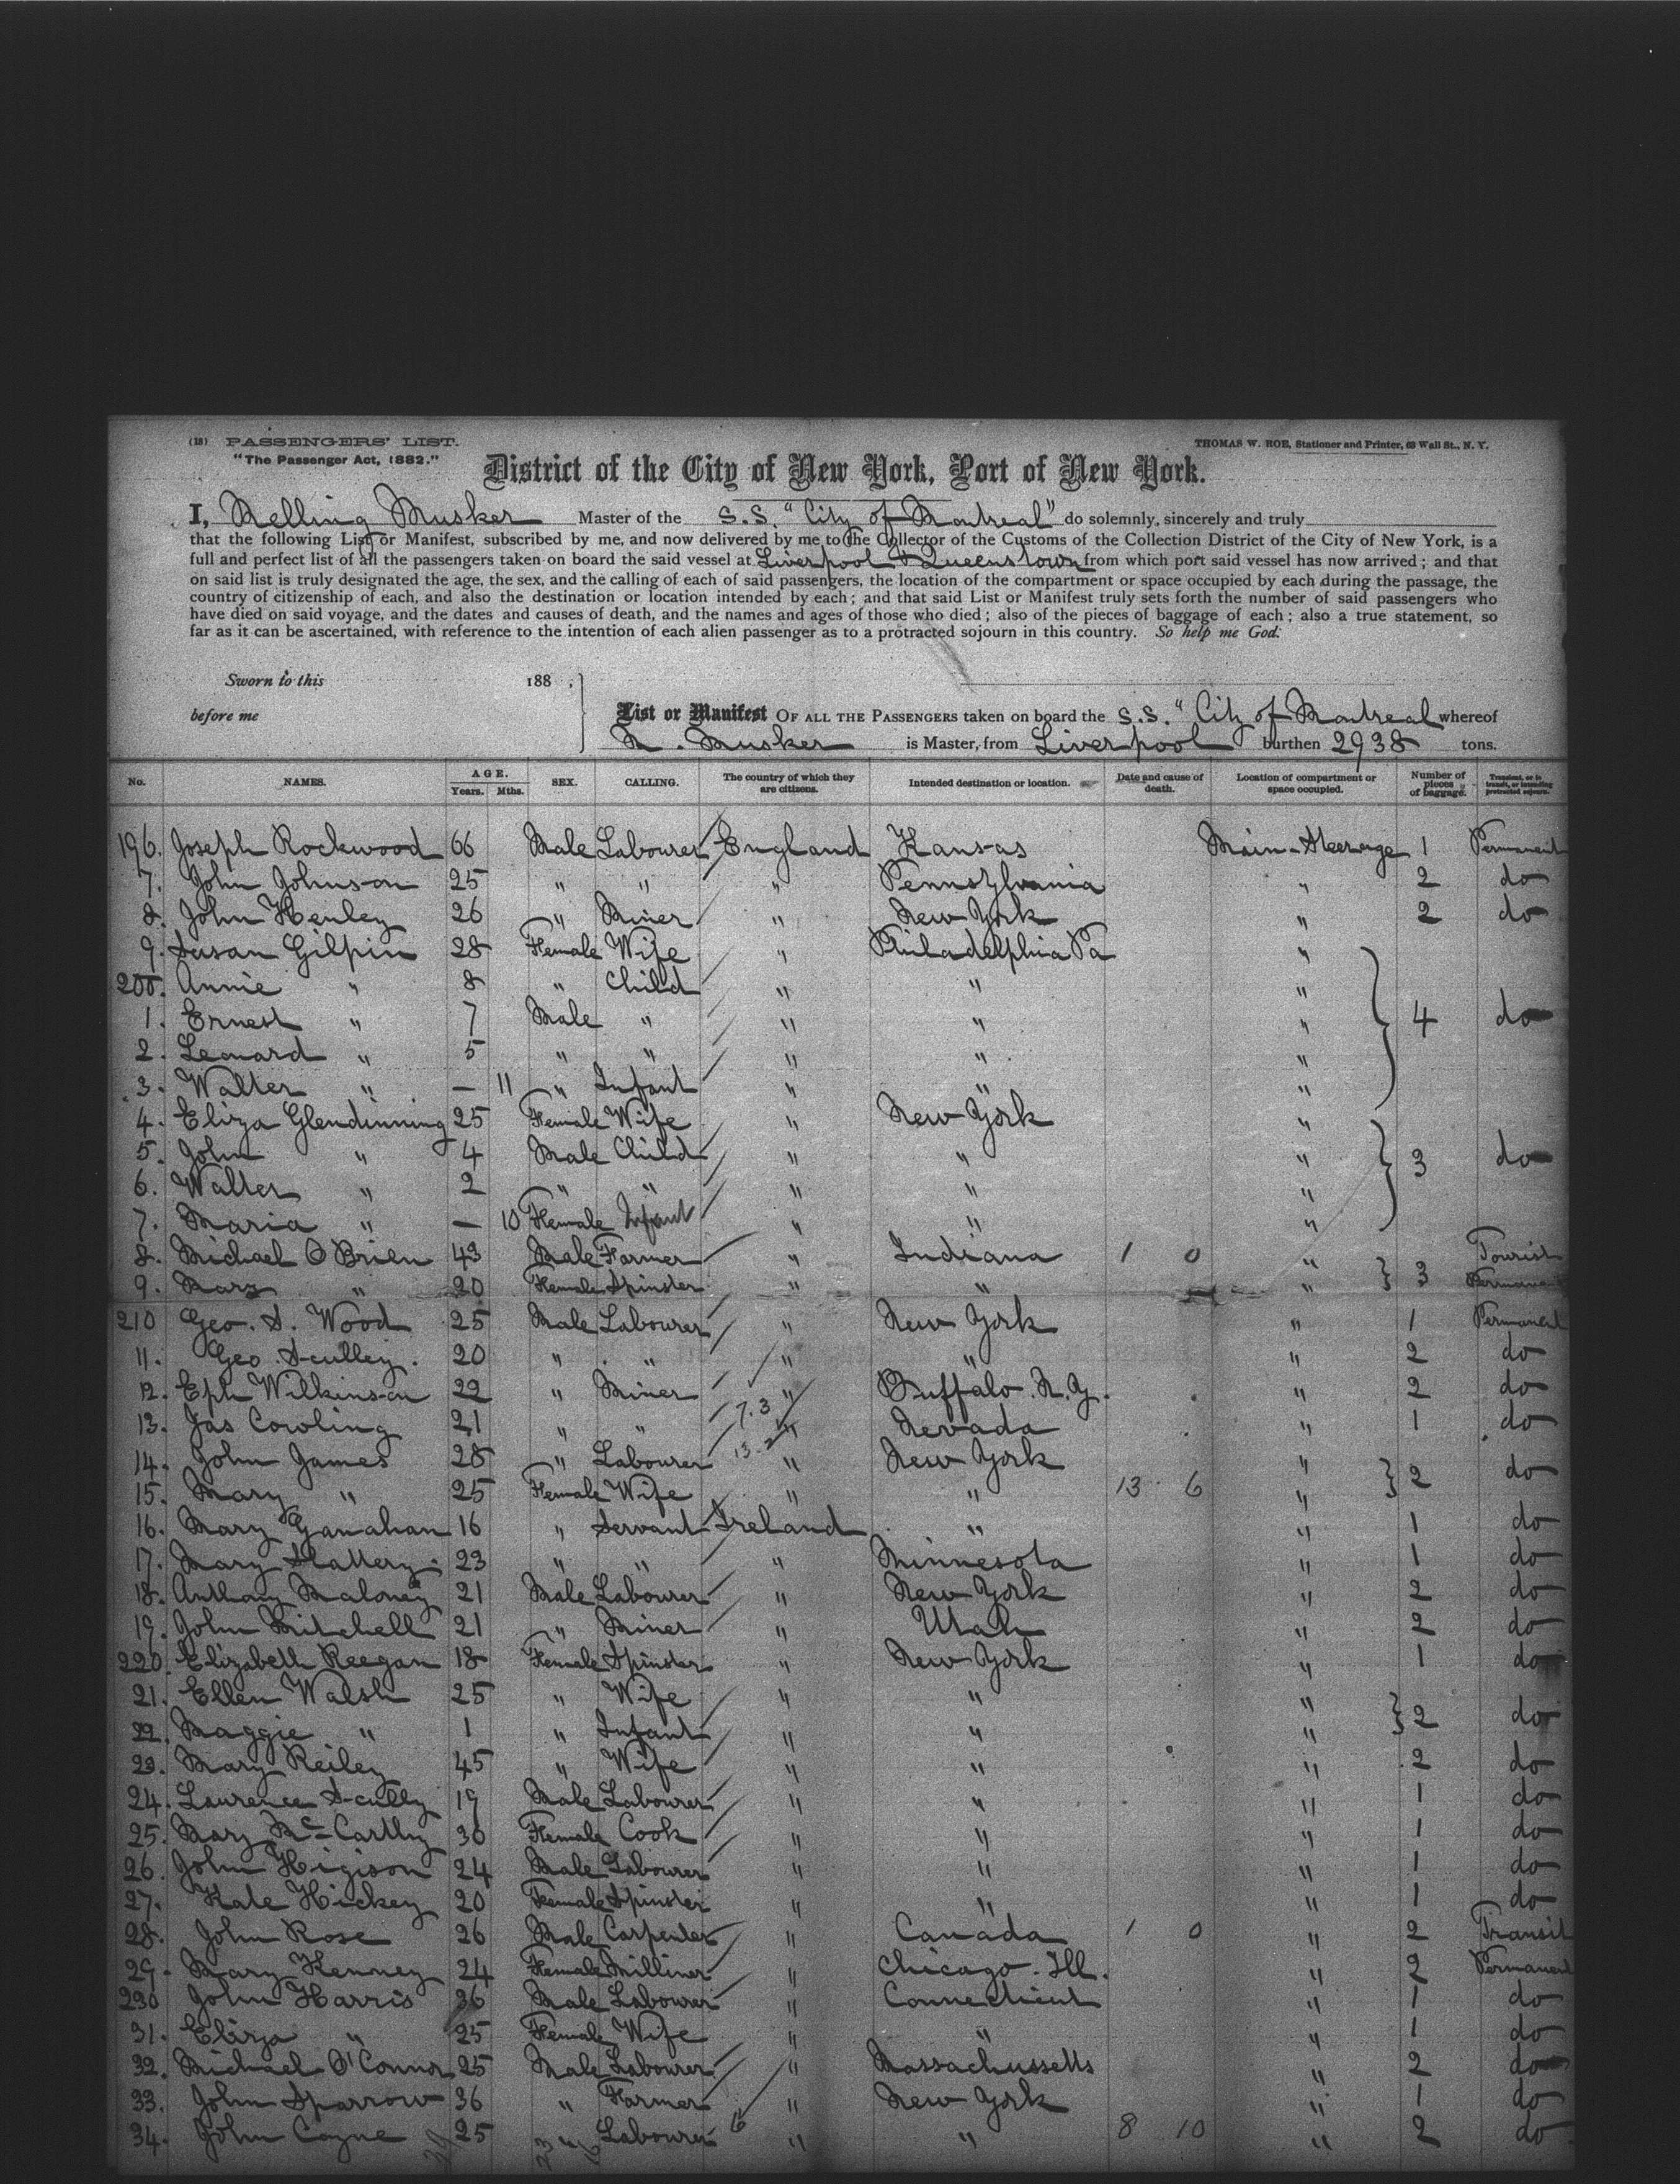 (18) PASSENGERS' LIST. THOMAS W. ROE, Stationer and Printer, 63 Wall St., N. Y.
"The Passenger Act, 1882."
District of the City of New York, Port of New York.
I, Melling Musker Master of the S.S. "City of Montreal" do solemnly, sincerely and truly
that the following List or Manifest, subscribed by me, and now delivered by me to the Collector of the Customs of the Collection District of the City of New York, is a
full and perfect list of all the passengers taken on board the said vessel at Liverpool & Queenstown from which port said vessel has now arrived; and that
on said list is truly designated the age, the sex, and the calling of each of said passengers, the location of the compartment or space occupied by each during the passage, the
country of citizenship of each, and also the destination or location intended by each; and that said List or Manifest truly sets forth the number of said passengers who
have died on said voyage, and the dates and causes of death, and the names and ages of those who died; also of the pieces of baggage of each; also a true statement, so
far as it can be ascertained, with reference to the intention of each alien passenger as to a protracted sojourn in this country. So help me God.
Sworn to this 188 ,
before me
List or Manifest OF ALL THE PASSENGERS taken on board the S.S. "City of Montreal whereof
M. Musker is Master, from Liverpool burthen 2938 tons.
No. NAMES. AGE. Years. Mths. SEX. CALLING. The country of which they are citizens. Intended destination or location. Date and cause of death. Location of compartment or space occupied. Number of pieces of baggage. Transient, or in transit, or intending protracted sojourn.
196. Joseph Rockwood 66 Male Labourer England Kansas Main-Steerage 1 Permanent
7. John Johnson 25 " " " Pennsylvania " 2 do
8. John Henley 26 " Miner " New York " 2 do
9. Susan Gilpin 28 Female Wife " Philadelphia Pa "
200. Annie " 8 " Child " " "
1. Ernest " 7 Male " " " " 4 do
2. Leonard " 5 " " " " "
3. Walter " — 11 " Infant " " "
4. Eliza Glendinning 25 Female Wife " New York "
5. John " 4 Male Child " " " 3 do
6. Walter " 2 " " " " "
7. Maria " — 10 Female Infant " " "
8. Michael O'Brien 43 Male Farmer " Indiana 1 0 " Tourist
9. Mary " 20 Female Spinster " " " 3 Permanent
210 Geo. S. Wood 25 Male Labourer " New York " 1 Permanent
11. Geo. Sculley. 20 " " " " " 2 do
12. Eph Wilkinson 22 " Miner " Buffalo. N.Y. " 2 do
13. Jas Cowling 21 " " 7.3 " Nevada " 1 do
14. John James 28 " Labourer " New York " 2 do
15. Mary " 25 Female Wife " " 13 6 "
16. Mary Ganahan 16 " Servant Ireland " " 1 do
17. Mary Slattery. 23 " " " Minnesota " 1 do
18. Anthony Maloney 21 Male Labourer " New York " 2 do
19. John Mitchell 21 " Miner " Utah " 2 do
220. Elizabeth Reegan 18 Female Spinster " New York " 1 do
21. Ellen Walsh 25 " Wife " " " 2 do
22. Maggie " 1 " Infant " " "
23. Mary Reiley 45 " Wife " " " 2 do
24. Laurence Scully 19 Male Labourer " " " 1 do
25. Mary McCarthy 30 Female Cook " " " 1 do
26. John Higison 24 Male Labourer " " " 1 do
27. Kate Hickey 20 Female Spinster " " " 1 do
28. John Rose 26 Male Carpenter " Canada 1 0 " 2 Transit
29. Mary Kenney 24 Female Milliner " Chicago. Ill. " 2 Permanent
230 John Harris 36 Male Labourer " Connecticut " 1 do
31. Eliza " 25 Female Wife " " " 1 do
32. Michael O'Connor 25 Male Labourer " Massachussetts " 2 do
33. John Sparrow 36 " Farmer " New York " 1 do
34. John Coyne 25 " Labourer 6 " " 8 10 " 2 do